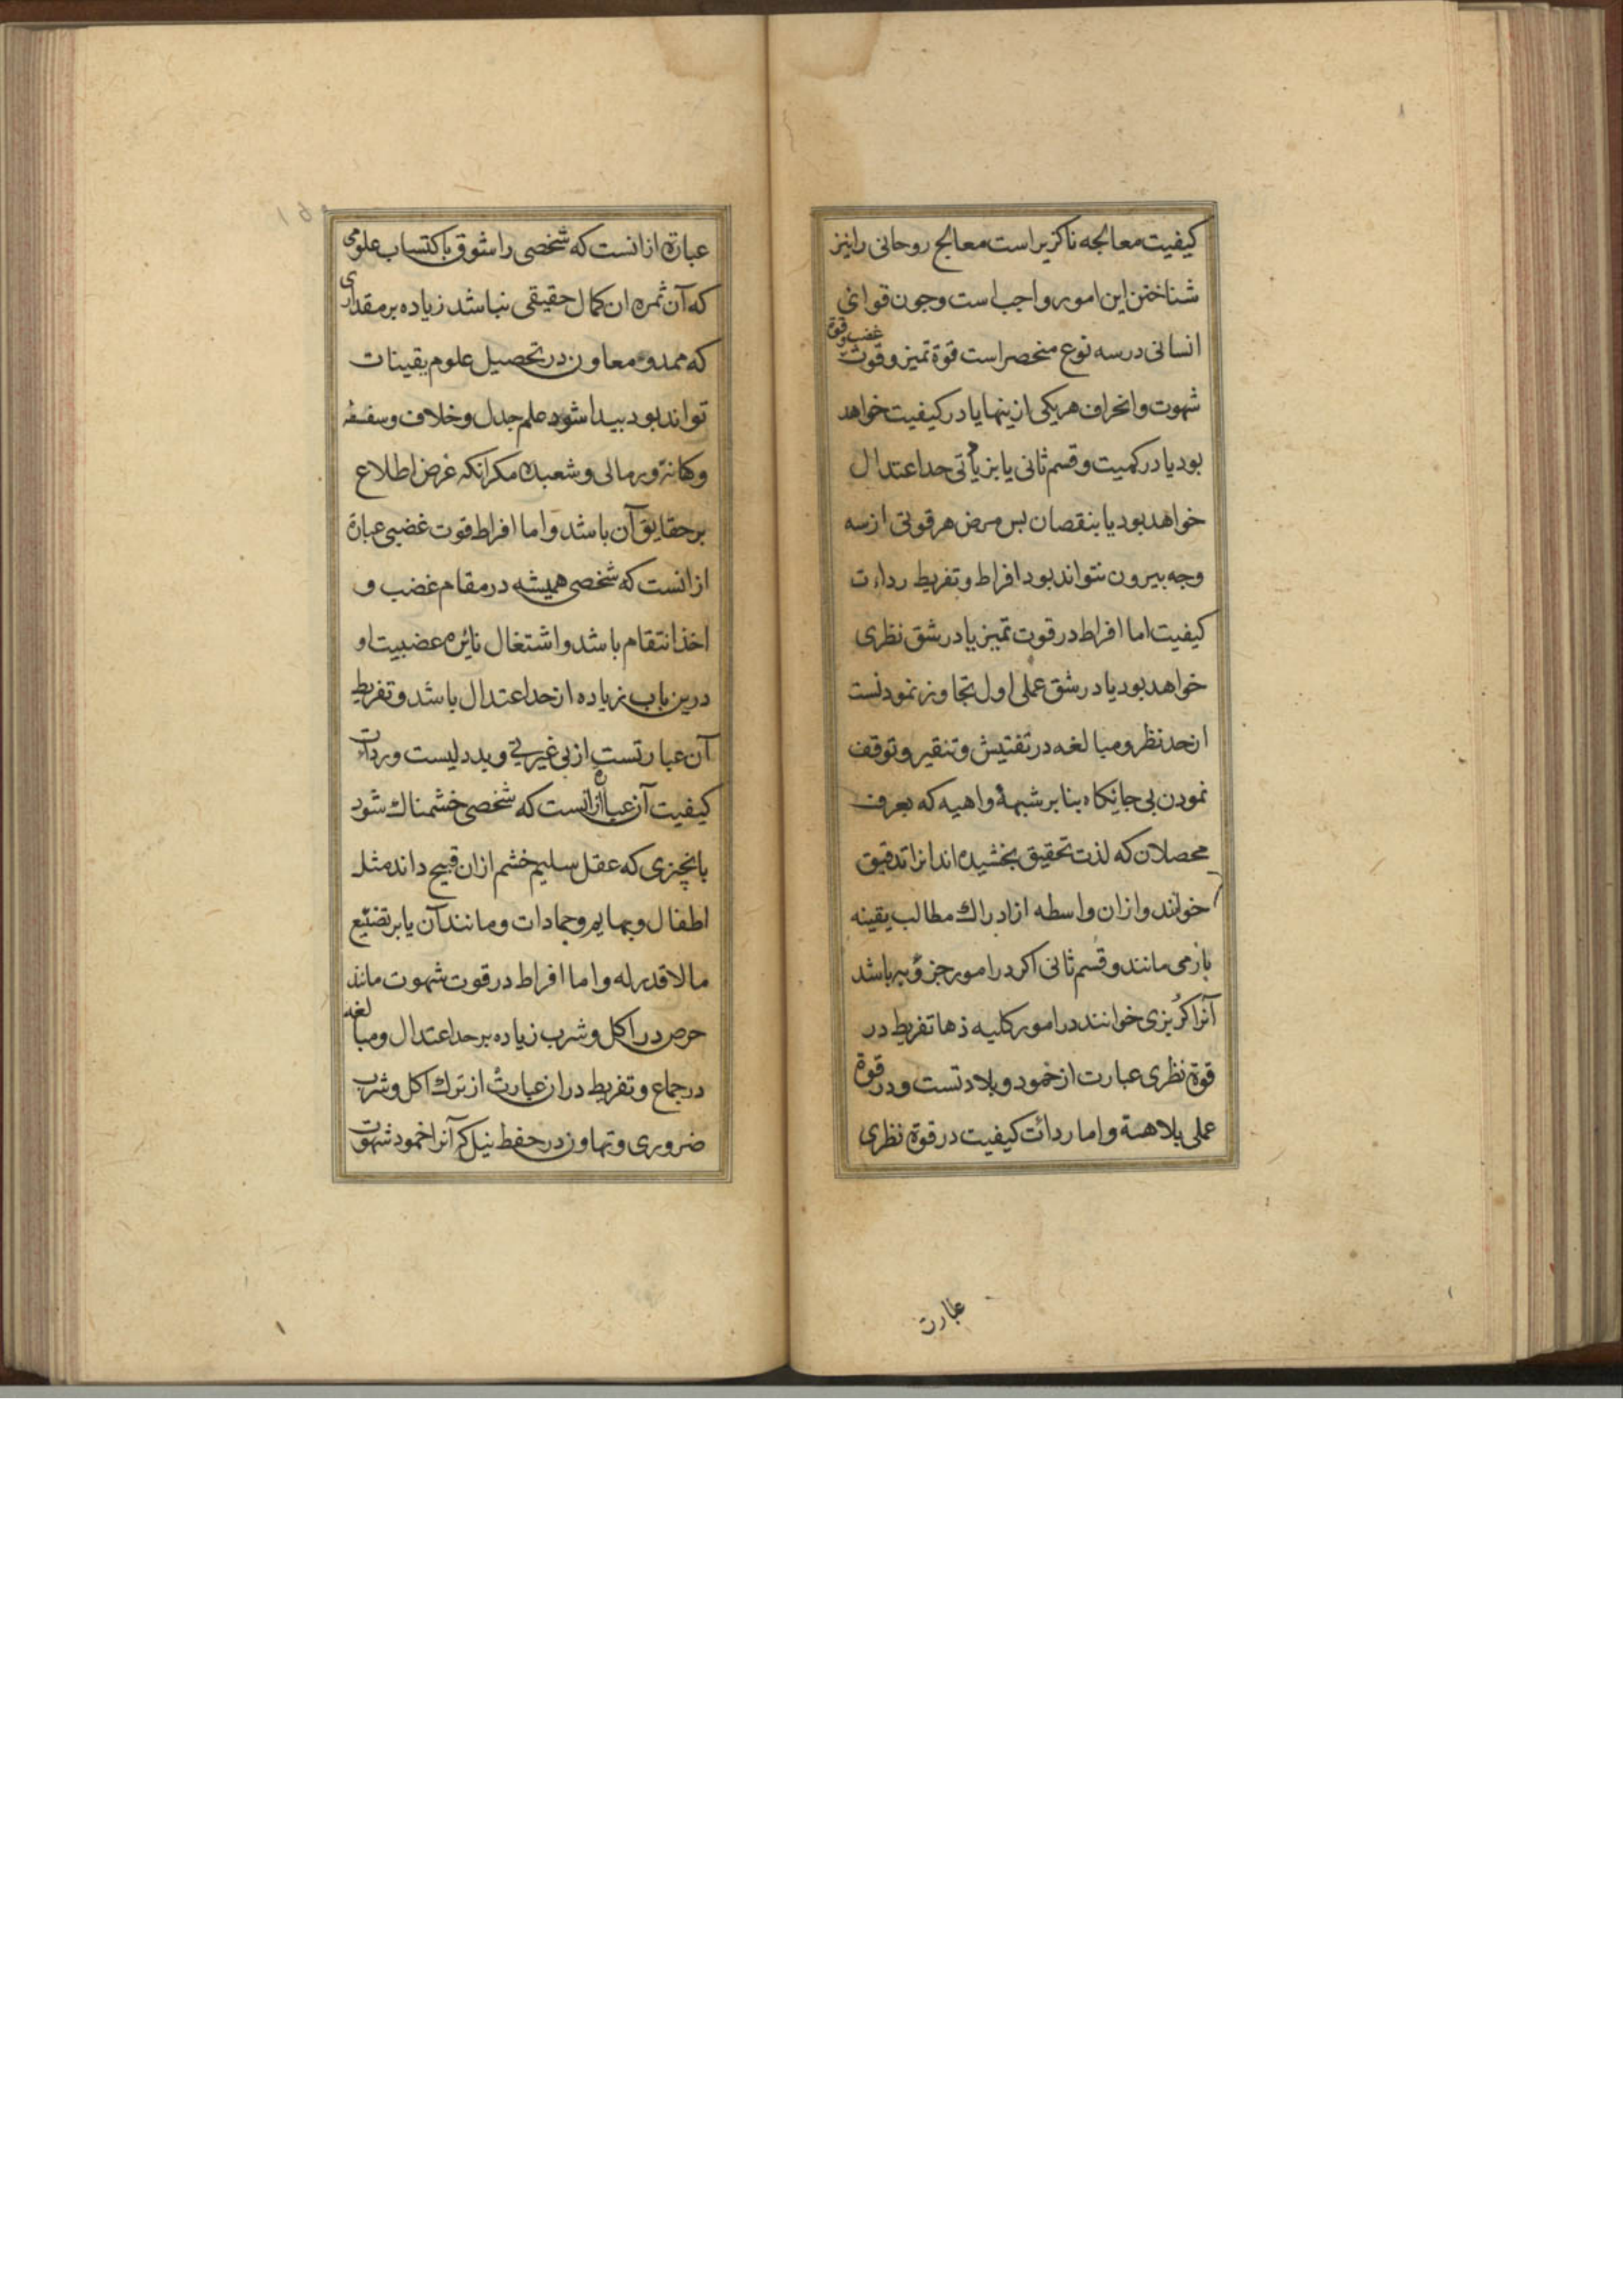 کیفیت معالجه ناکزیر است معالج روحانی را نیز
شناختن این امور واجب است و جون قوای
انسانی در سه نوع منحصر است قوة تمیز و قوت غضب و قوة
شهوت و انحراف هر یکی ازینها یا در کیفیت خواهد
بود یا در کمیت و قسم ثانی یا بزیادتی حد اعتدال
خواهد بود یا بنقصان بس مرض هر قوتی از سه
وجه بیرون نتواند بود افراط و تفریط رداءت
کیفیت اما افراط در قوت تمیز یا در شق نظری
خواهد بود یا در شق عملی اول تجاوز نمودنست
از حد نظر و مبالغه در تفتیش و تنقیر و توقف
نمودن بی جایکاه بنا بر شبهۀ واهیه که بعرف
محصلان که لذت تحقیق بخشیده اند انرا تدقیق
خوانند و ازان واسطه از ادراك مطالب یقینه
باز می مانند و قسم ثانی اکر در امور جزؤیه باشد
آنرا کربزی خوانند در امور کلیه ذها تفریط در
قوة نظری عبارت از خمود و بلادتست و در قوة
عملی بلاهة و اما ردائت کیفیت در قوة نظری
عبارت
عبارة از انست که شخصی را شوق باکتساب علومی
که آن ثمره ان کمال حقیقی نباشد زیاده بر مقداری
که ممد و معاون در تحصیل علوم یقینات
تواند بود بیدا شود علم جدل و خلاف و سفسفه
و کهانة و رمالی و شعبده مکر انکه غرض اطلاع
بر حقایق آن باشد و اما افراط قوت غضبی عبارة
از انست که شخصی همیشه در مقام غضب و
اخذ انتقام باشد و اشتغال نائره غضبیت او
درین باب زیاده از حد اعتدال باشد و تفریط
آن عبارتست از بی غیرتی و بد دلیست و رداءت
کیفیت آن عبارة از انست که شخصی خشمناك شود
بانچیزی که عقل سلیم خشم ازان قبیح داند مثل
اطفال و بهایم و جمادات و مانند آن یا بر تضییع
مالا قدر له و اما افراط در قوت شهوت مانند
حرص در اکل و شرب زیاده بر حد اعتدال و مبالغه
در جماع و تفریط در ان عبارتست از ترك اکل و شرب
ضروری و تهاون در حفظ نیل که آنرا خمود شهوت